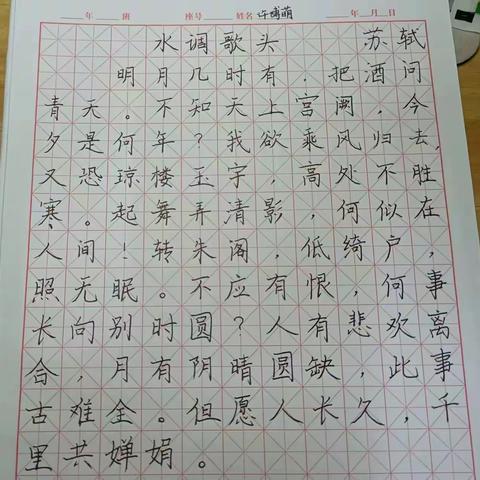 年 班 座号 姓名 许博萌 年 月 日
水调歌头 苏轼
明月几时有.把酒问
青天。不知天上宫阙,今
夕是何年?我欲乘风归去,
又恐琼楼玉宇,高处不胜
寒。起舞弄清影,何似在
人间!转朱阁,低绮户,
照无眠。不应有恨,何事
长向别时圆?人有悲欢离
合,月有阴晴圆缺,此事
古难全。但愿人长久,千
里共婵娟。